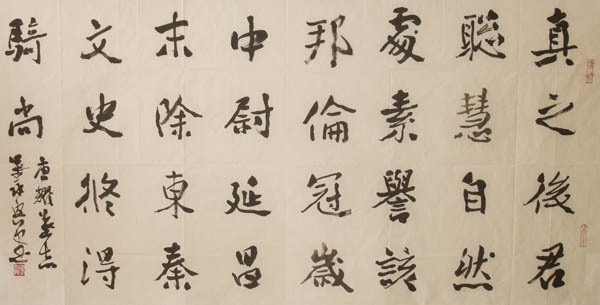 真之後君
聰慧自然
處素譽該
邦倫冠歲
中尉延昌
末除東秦
文史修得
騎尚
唐耀墓志